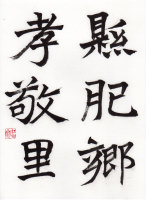 縣肥鄉
孝敬里